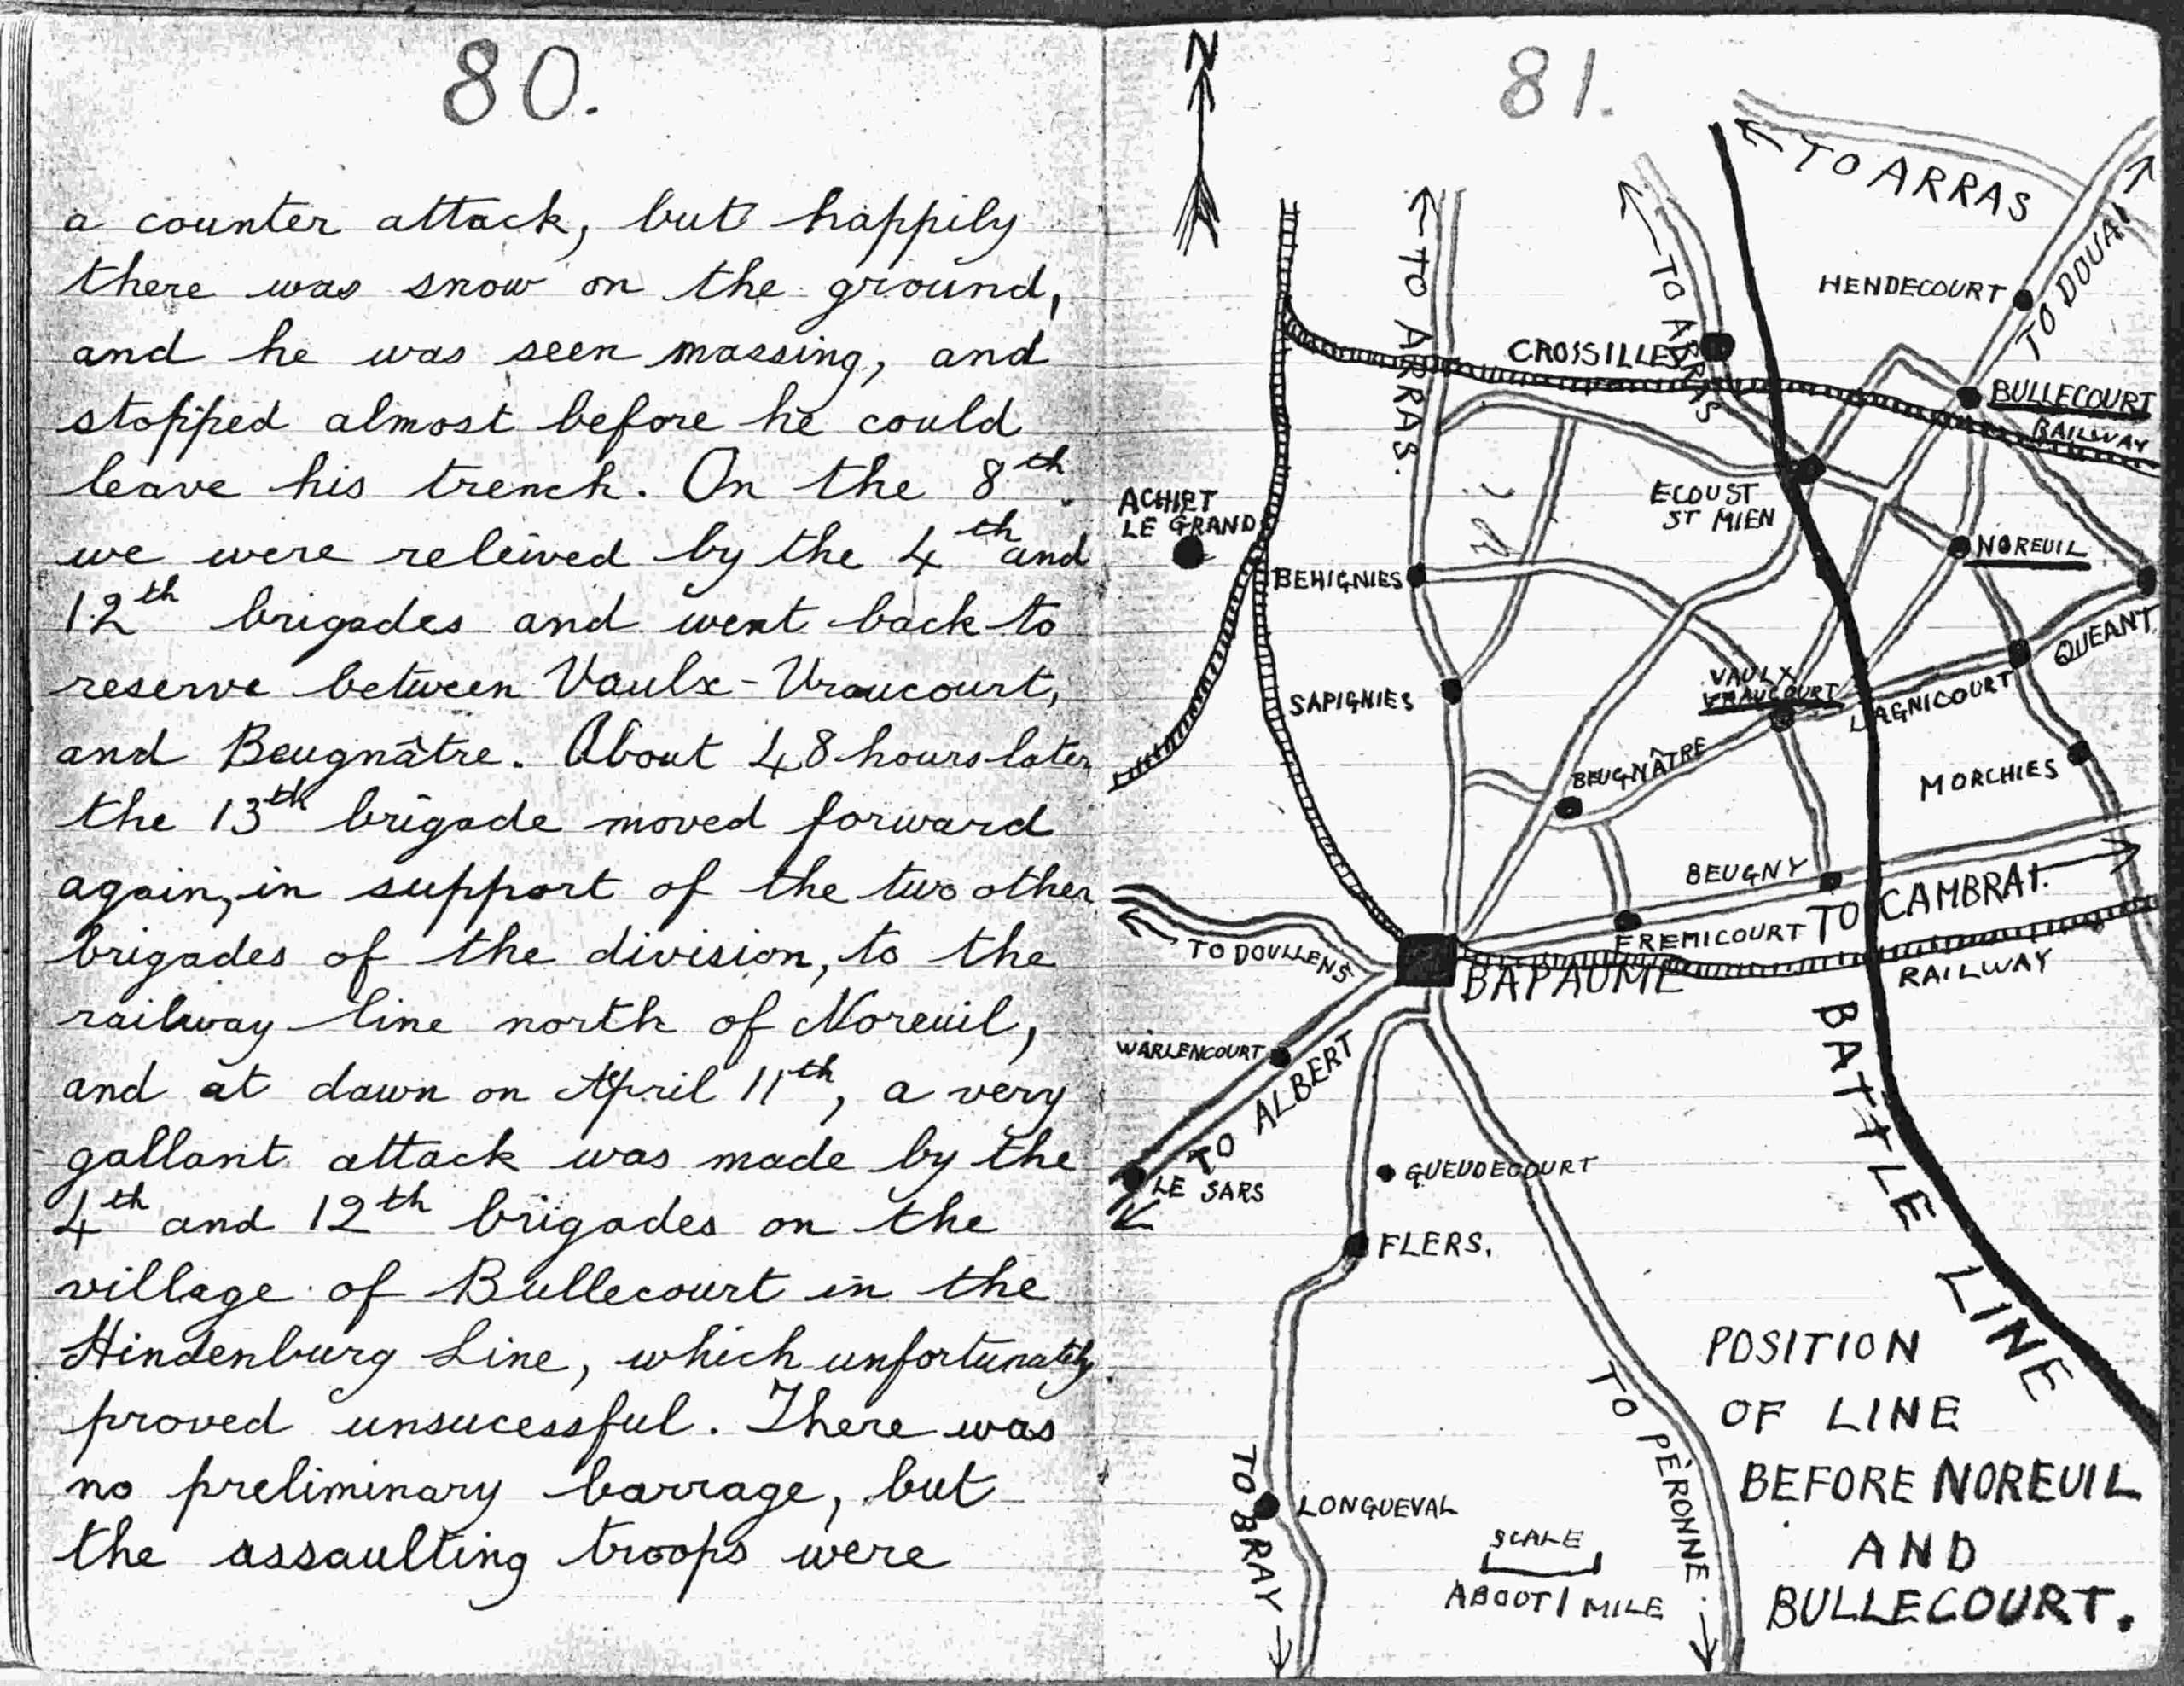 80.
a counter attack, but happily
there was snow on the ground,
and he was seen massing, and
stopped almost before he could
leave his trench. On the 8th
we were releived by the 4th and
12th brigades and went back to
reserve between Vaulx-Vraucourt,
and Beugnâtre. About 48 hours later
the 13th brigade moved forward
again, in support of the two other
brigades of the division, to the
railway line north of Noreuil,
and at dawn on April 11th, a very
gallant attack was made by the
4th and 12th brigades on the
village of Bullecourt in the
Hindenburg Line, which unfortunately
proved unsucessful. There was
no preliminary barrage, but
the assaulting troops were
81.
N
TO ARRAS
TO ARRAS.
TO ARRAS
TO DOUAI
HENDECOURT
CROISILLES
BULLECOURT
RAILWAY
ACHIET
LE GRAND
ECOUST
ST MIEN
NOREUIL
BEHIGNIES
QUEANT
SAPIGNIES
VAULX
VRAUCOURT
LAGNICOURT
BEUGNÂTRE
MORCHIES
BEUGNY
TO CAMBRAI.
FREMICOURT
TO DOULLENS
BAPAUME
RAILWAY
WARLENCOURT
TO ALBERT
LE SARS
GUEUDECOURT
FLERS.
BATTLE LINE
TO PÈRONNE.
TO BRAY
LONGUEVAL
SCALE
ABOUT 1 MILE
POSITION
OF LINE
BEFORE NOREUIL
AND
BULLECOURT.